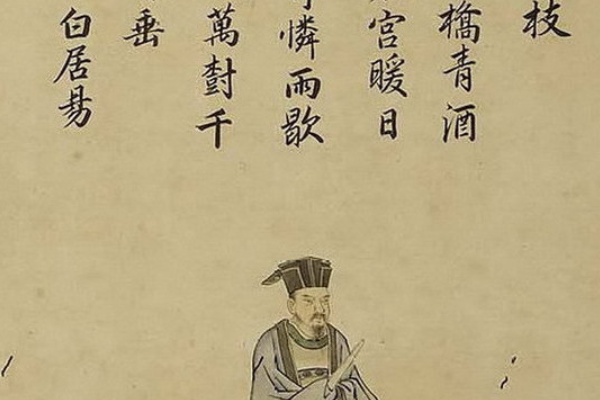 枝
橋青酒
宮暖日
憐雨歇
萬樹千
垂
白居易